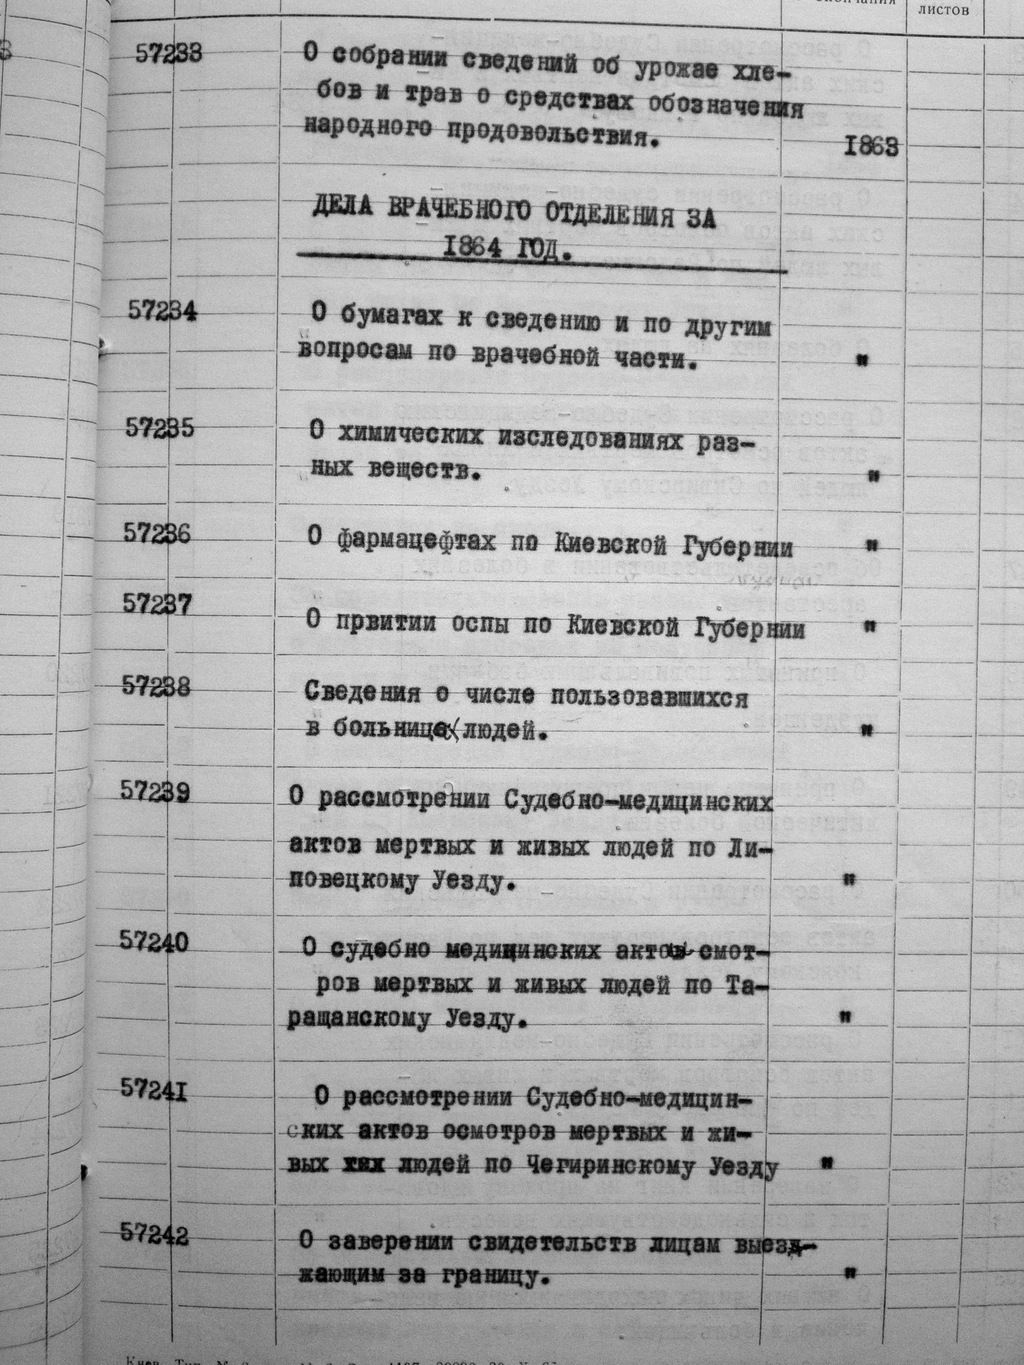 листов
57233 О собрании сведений об урожае хле-
бов и трав о средствах обозначения
народного продовольствия.
1863
ДЕЛА ВРАЧЕБНОГО ОТДЕЛЕНИЯ ЗА
1864 ГОД.
57234 О бумагах к сведению и по другим
вопросам по врачебной части. "
57235 О химических изследованиях раз-
ных веществ. "
57236 О фармацефтах по Киевской Губернии "
57237
О првитии оспы по Киевской Губернии "
57238 Сведения о числе пользовавшихся
в больнице людей. "
57239 О рассмотрении Судебно-медицинских
актов мертвых и живых людей по Ли-
повецкому Уезду. "
57240 О судебно медицинских актов смот-
ров мертвых и живых людей по Та-
ращанскому Уезду. "
57241 О рассмотрении Судебно-медицин-
ских актов осмотров мертвых и жи-
вых людей по Чегиринскому Уезду "
57242 О заверении свидетельств лицам выезд-
жающим за границу. "